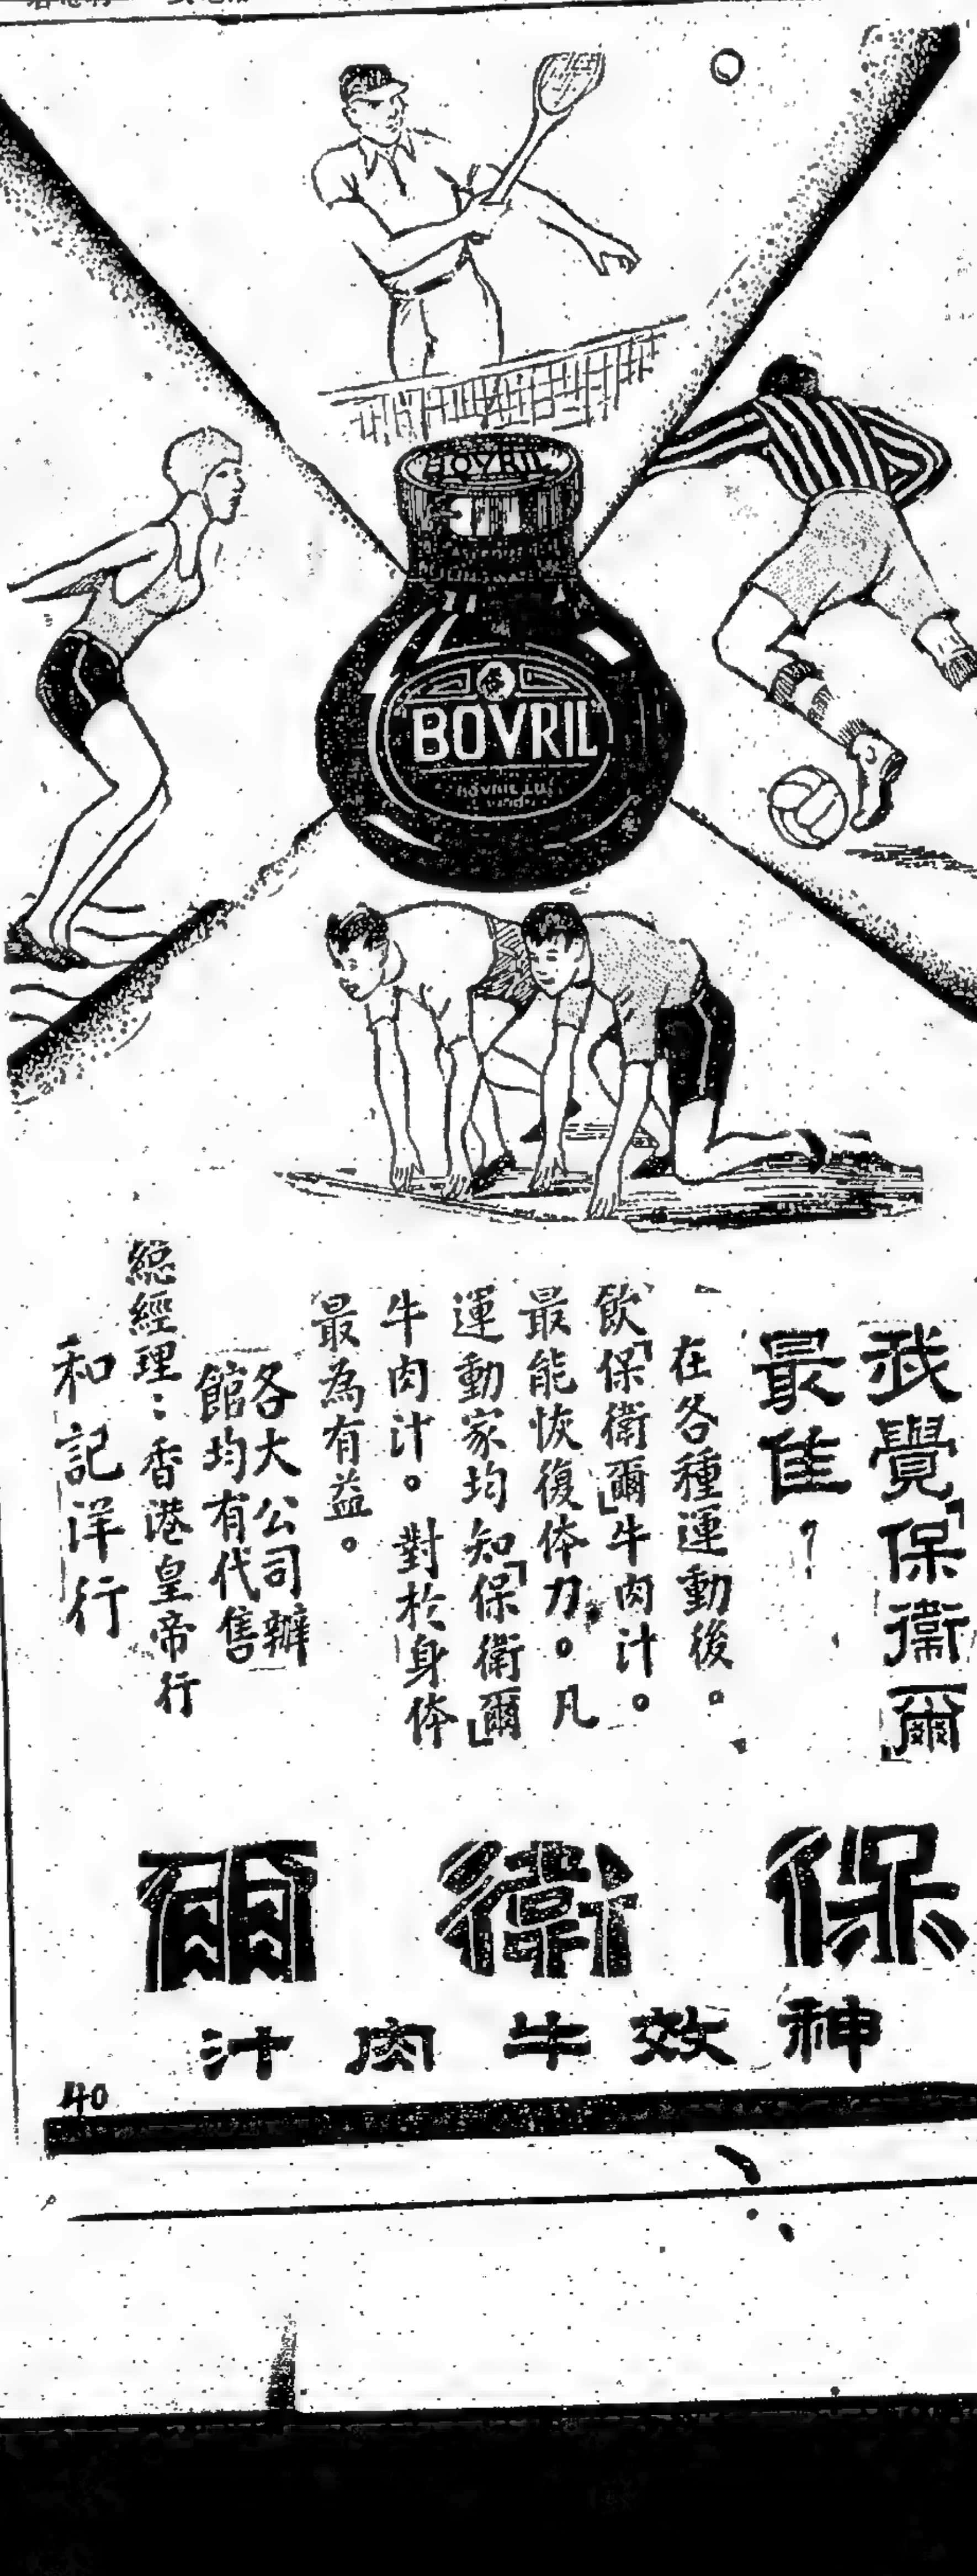 BOVRIL
BOVRIL
BOVRIL LTD
我覺「保衛爾」
最佳？
在各種運動後。
飲「保衛爾」牛肉汁。
最能恢復体力。凡
運動家均知「保衛爾」
牛肉汁。對於身体
最為有益。
各大公司辦
館均有代售
総經理：香港皇帝行
和記洋行
保衛爾
神效牛肉汁
40